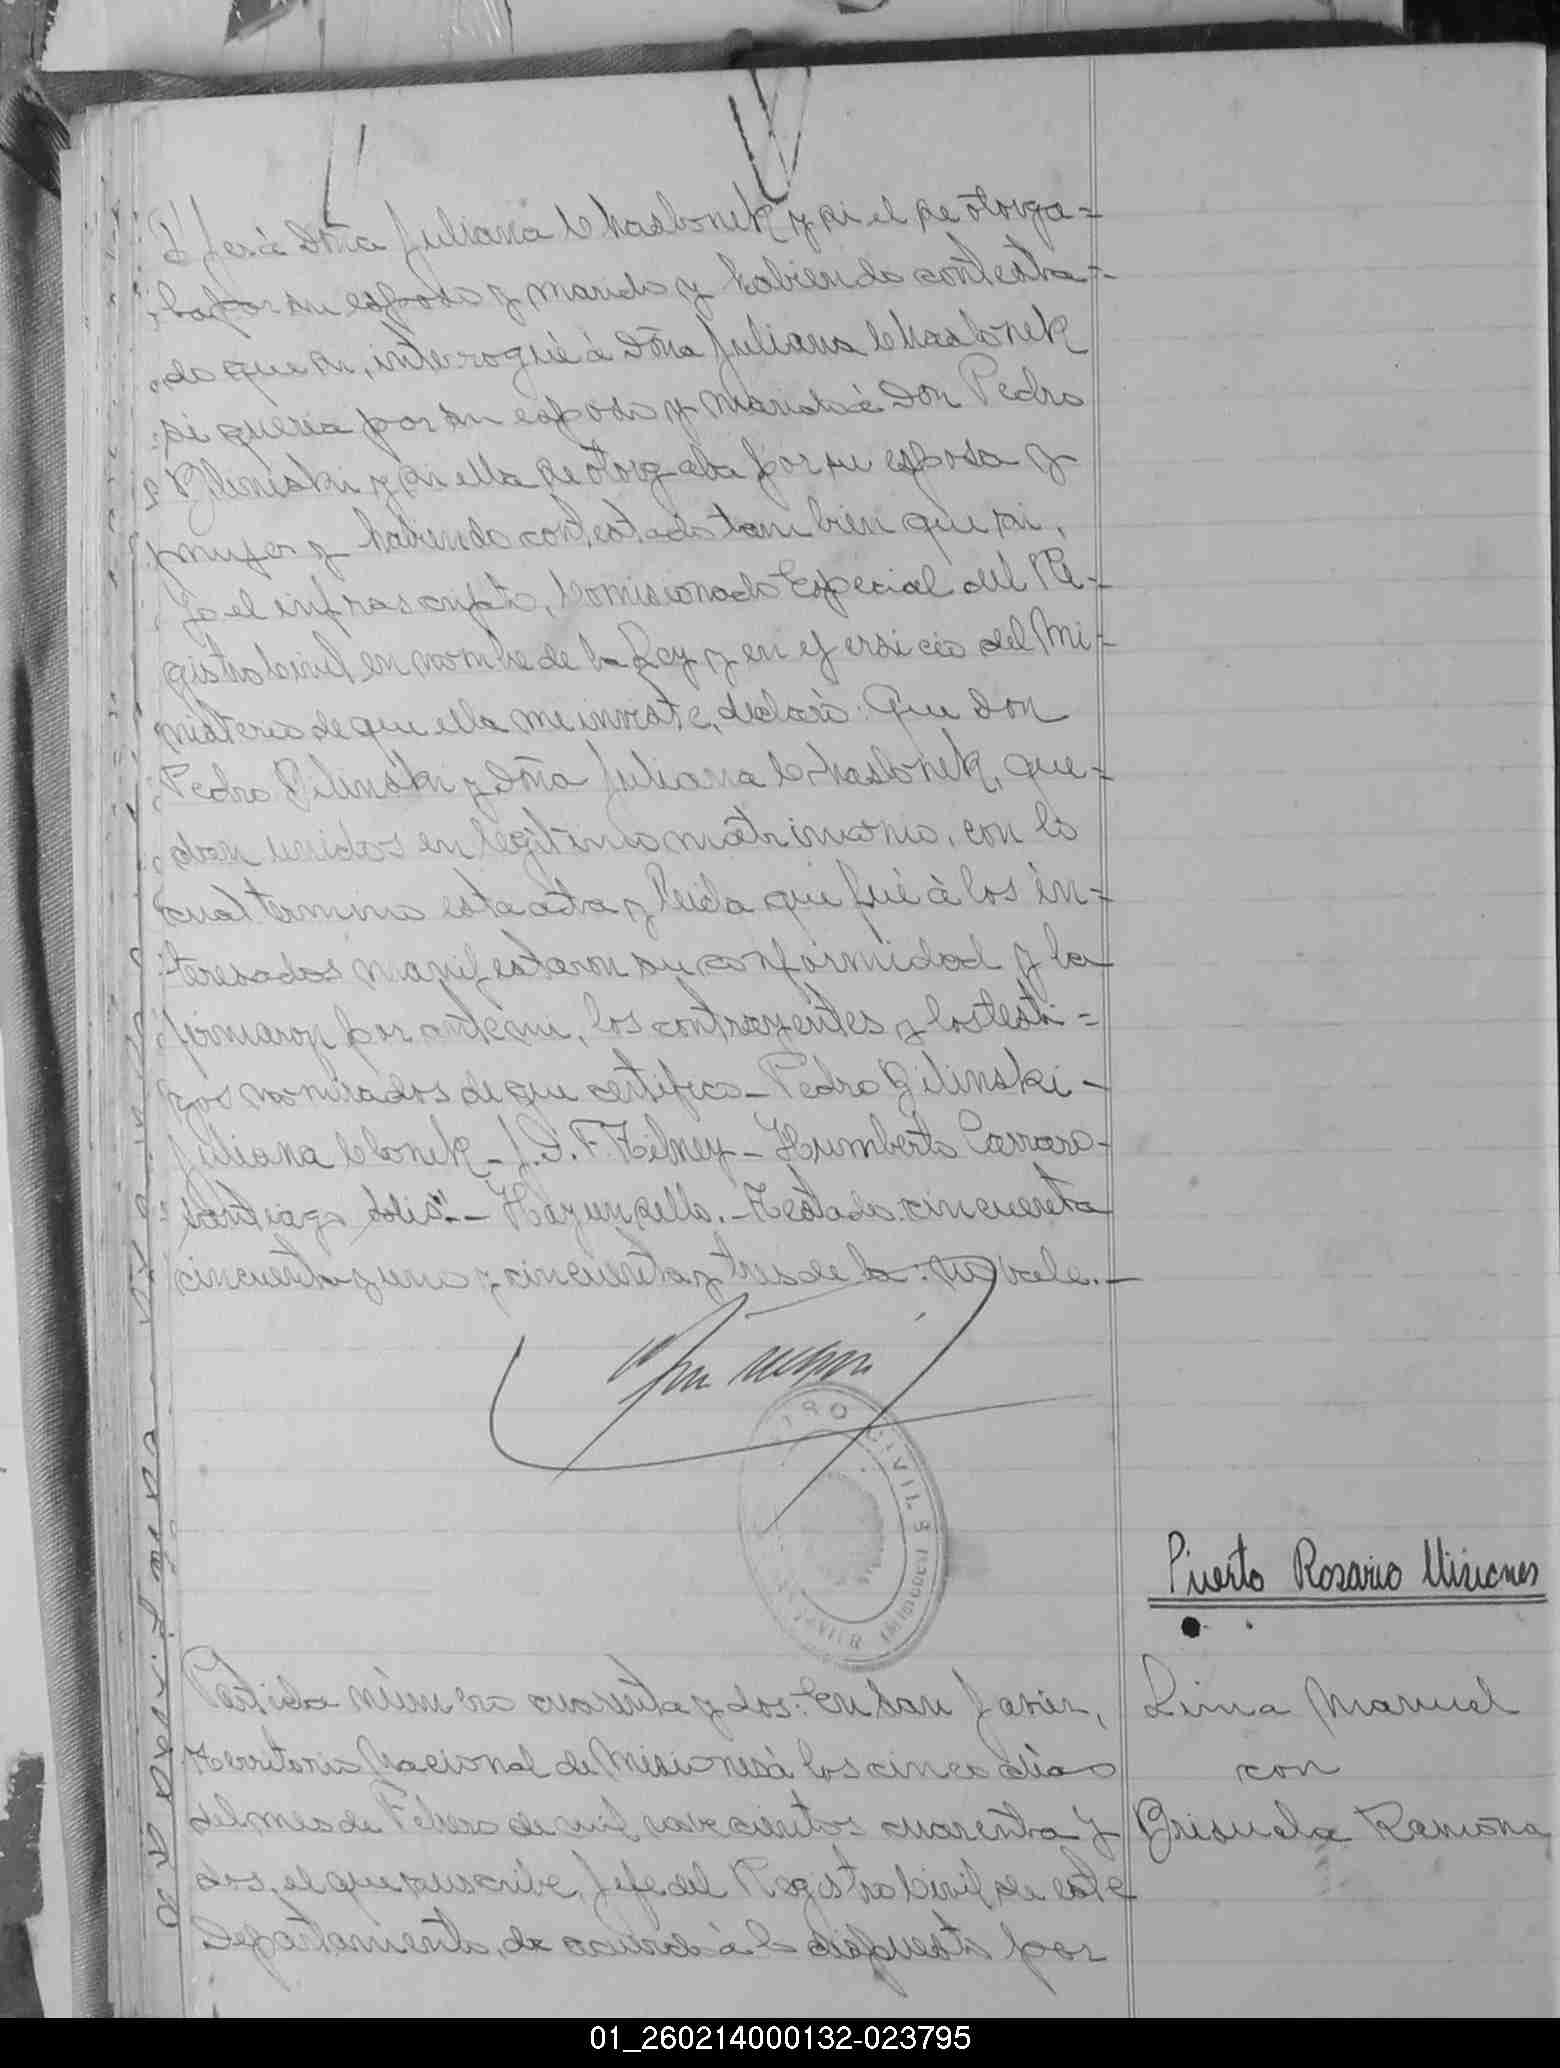 jer à Doña Juliana Chasbonek y si el se otorga=
ba por su esposo y marido y habiendo contesta=
do que si, interrogué à Doña Juliana Chasbonek
si queria por su esposo y marido à Don Pedro
Pilinski y si ella se otorgaba por su esposa y
mujer y habiendo contestado tambien que si,
yo el infrascripto, Comisionado Especial del Re-
gistro Civil en nombre de la Ley y en ejersicio del Mi-
nisterio de que ella me inviste, declaro: Que Don
Pedro Pilinski y Doña Juliana Chasbonek, que=
dan unidos en legitimo matrimonio, con lo
cual termino esta acta y leida que fué à los in=
teresados manifestaron su conformidad y la
firmaron por ante mi, los contrayentes y los testi=
gos nombrados de que certifico_ Pedro Gilinski-
Juliana Cbonek - J. G. F. Tilney - Humberto Carraro-
Santiago Solis". - Hay un sello. - Testado: cincuenta
cincuenta y uno y cincuenta y tres de la: no vale. -
CIVIL
Puerto Rosario Misiones
Partida número cuarenta y dos: En San Javier,
Territorio Nacional de Misiones à los cinco dias
del mes de Febrero de mil novecientos cuarenta y
dos, el que suscribe, Jefe del Registro Civil de este
Departamento, de acuerdo à lo dispuesto por
Lima Manuel
con
Brisuela Ramona
01_260214000132-023795